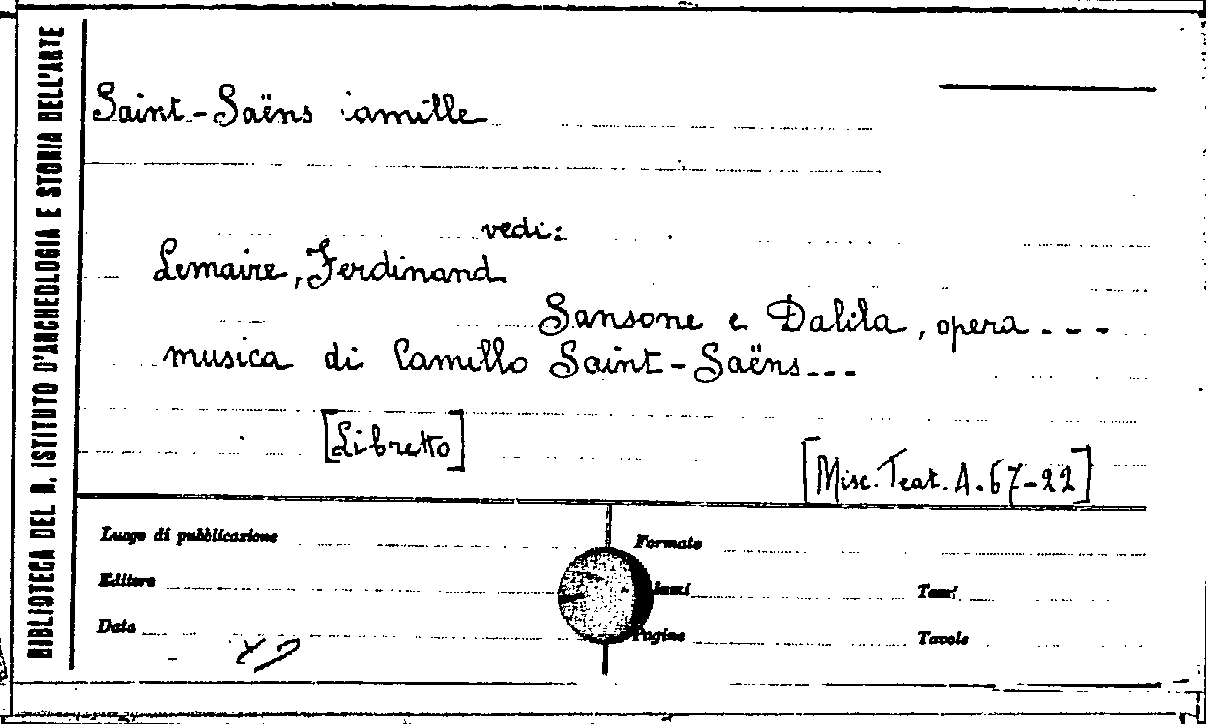 BIBLIOTECA DEL R. ISTITUTO D'ARCHEOLOGIA E STORIA DELL'ARTE
Saint-Saëns Camille
vedi:
Lemaire, Ferdinand
Sansone e Dalila, opera ---
musica di Camillo Saint-Saëns---
[Libretto]
[Misc. Teat. A. 67-22]
Luogo di pubblicazione
Formato
Editore
Tomi
Data
Pagine
Tavole